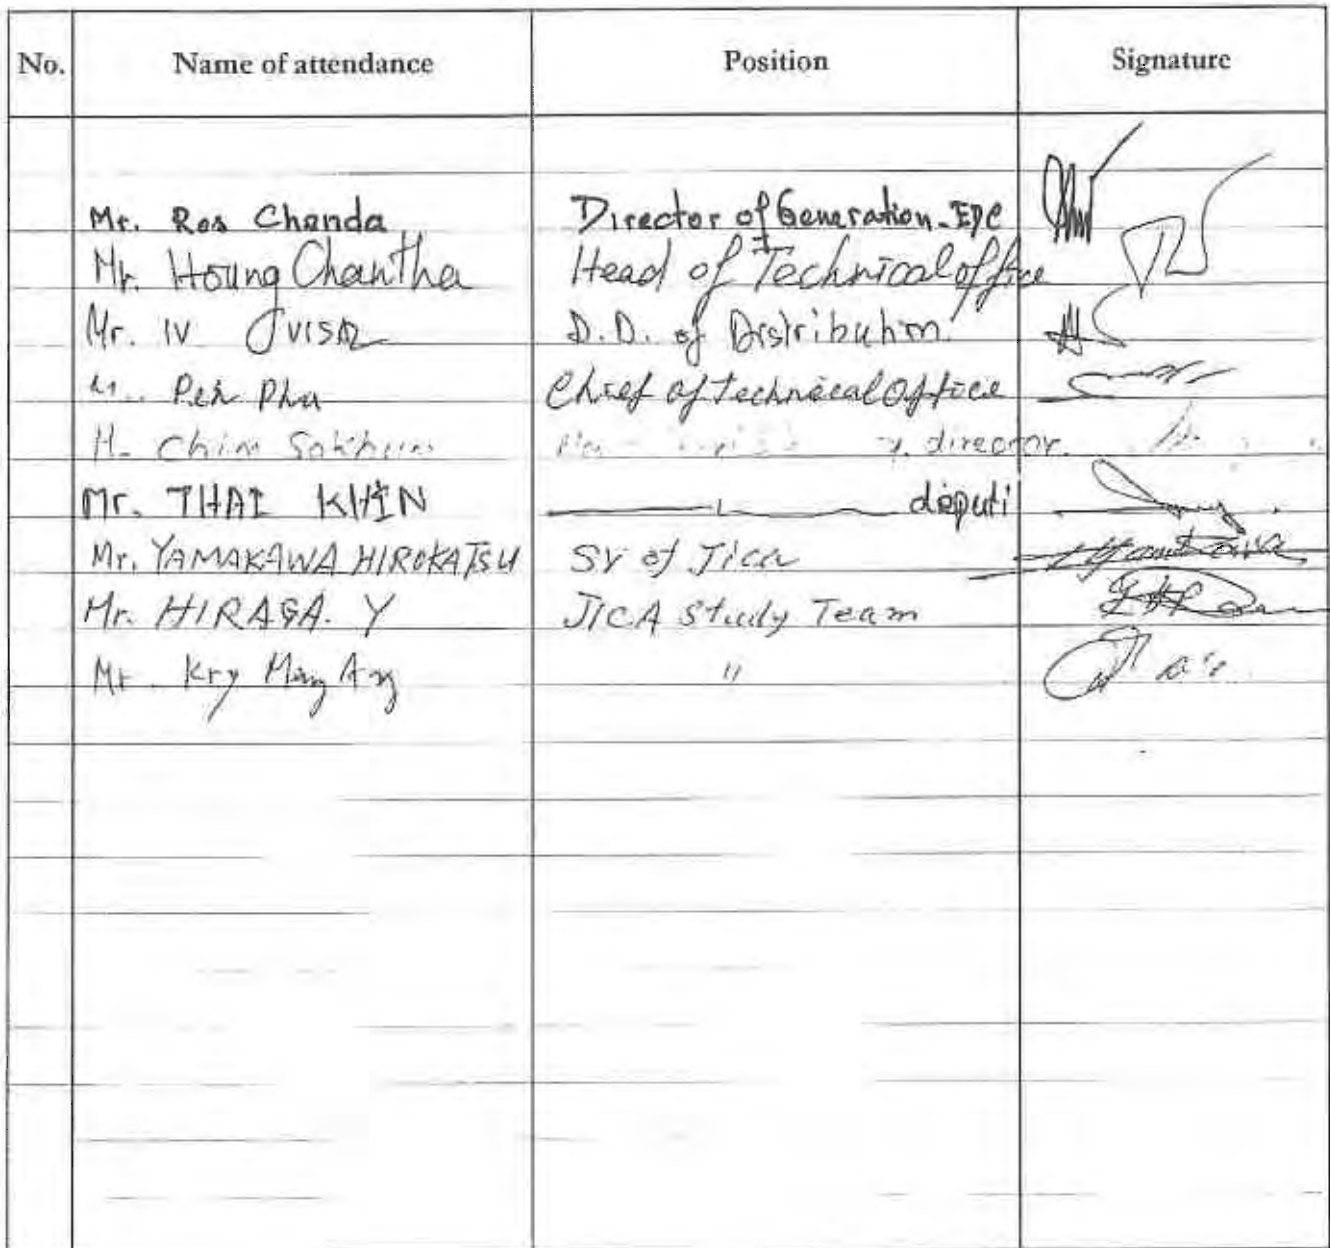 No. Name of attendance Position Signature
Mr. Ros Chanda Director of Generation-EDC
Mr. Houng Chantha Head of Technical office
Mr. IV VISAL D.D. of Distribution
Pen Phu Chief of technical Office
Chim Sokhun director.
Mr. THAI KHIN deputi
Mr. YAMAKAWA HIROKATSU SV of Jica
Mr. HIRAGA. Y JICA Study Team
Mr. Kry Ming Ang "